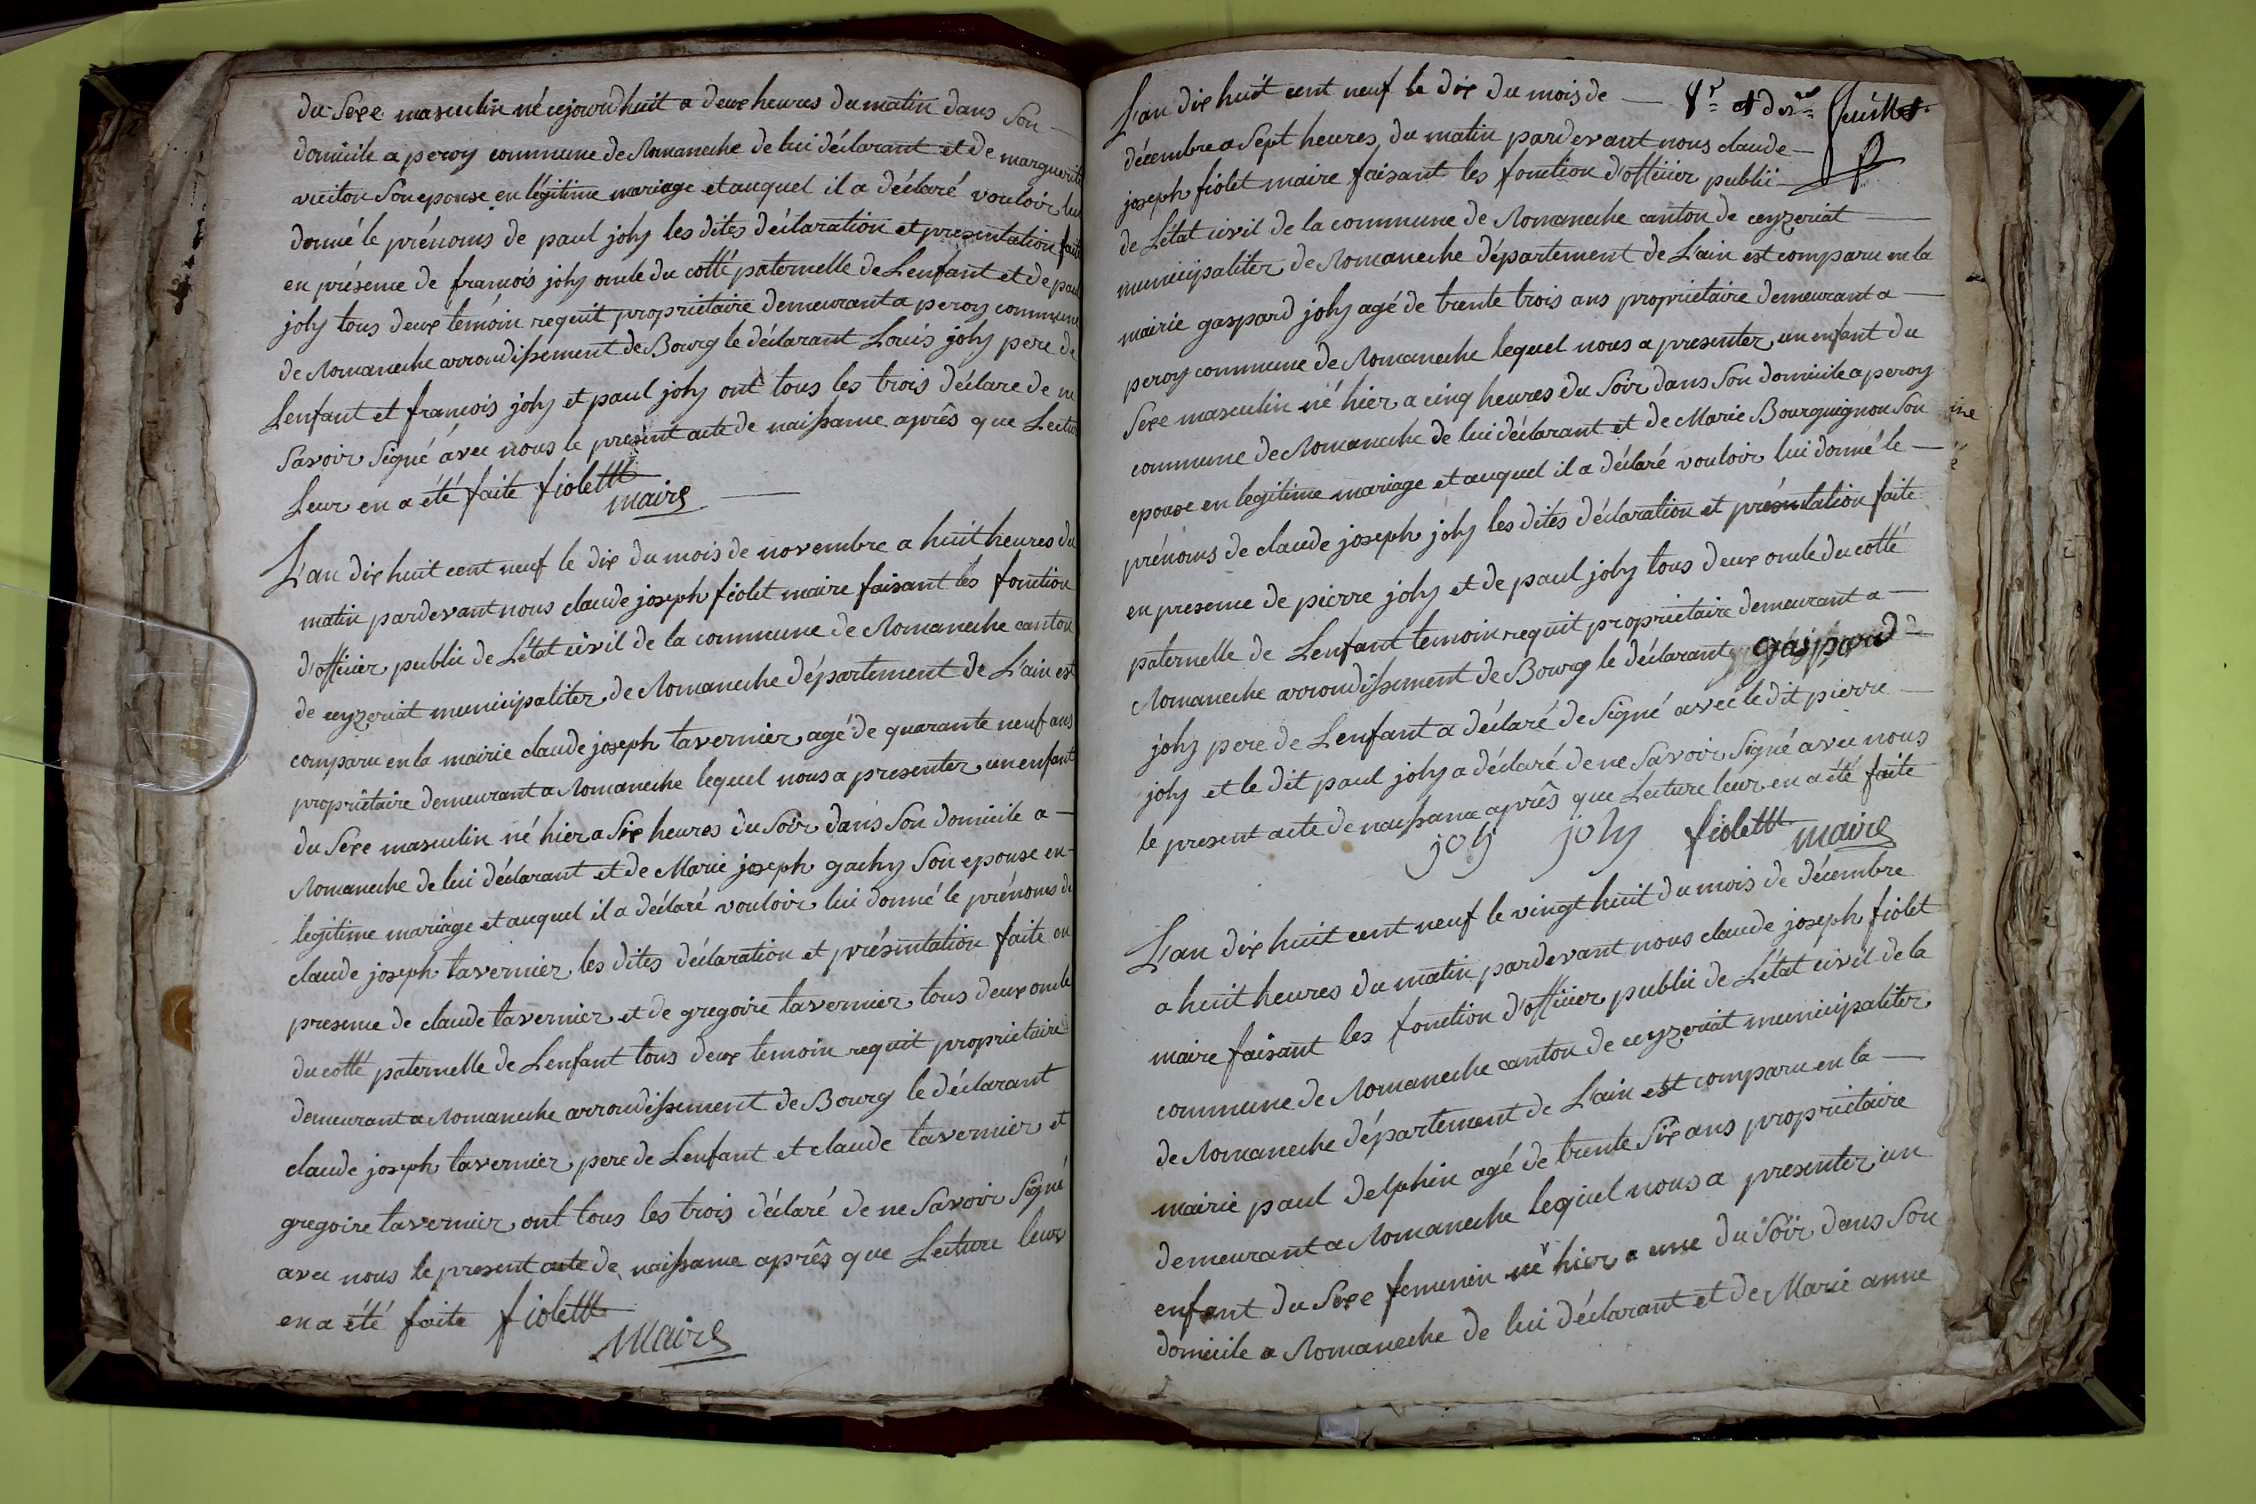 du Sexe masculin né cejourd'huit a deux heures du matin dans Son
domicile a peroy commune de Romaneche de lui déclarant et de marguerite
vuiton Son epouse en légitime mariage et auquel il a déclaré vouloir lui
donné le prénoms de paul joly les dites déclaration et presentation faite
en présence de francois joly oncle du cotté paternelle de Lenfant et de paul
joly tous deux temoin requit proprietaire demeurant a peroy commune
de Romaneche arrondissement de Bourg le déclarant Louis joly pere de
Lenfant et francois joly et paul joly ont tous les trois déclare de ne
Savoir Signé avec nous le present acte de naissance après que Lecture
Leur en a été faite fiolet
maire
L'an dix huit cent neuf le dix du mois de novembre a huit heures du
matin pardevant nous claude joseph fiolet maire faisant les fonction
d'officier public de L'état civil de la commune de Romaneche canton
de ceyzeriat municipaliter de Romaneche département de L'ain est
comparu en la mairie claude joseph tavernier agé de quarante neuf ans
proprietaire demeurant a Romaneche lequel nous a presenter un enfant
du Sexe masculin né hier a Six heures du Soir dans Son domicile a
Romaneche de lui déclarant et de Marie joseph gachy Son epouse en
legitime mariage et auquel il a déclaré vouloir lui donné le prénoms de
claude joseph tavernier les dites déclaration et présentation faite en
presence de claude tavernier et de gregoire tavernier tous deux oncle
du cotté paternelle de Lenfant tous deux temoin requit proprietaire
demeurant a Romaneche arrondissement de Bourg le déclarant
claude joseph tavernier pere de Lenfant et claude tavernier et
gregoire tavernier ont tous les trois déclaré de ne Savoir Signé
avec nous le present acte de naissance après que Lecture leur
en a été faite fiolet
maire
L'an dix huit cent neuf le dix du mois de
8r et der feuillet
décembre a Sept heures du matin pardevant nous claude
joseph fiolet maire faisant les fonction d'officier public
de L'état civil de la commune de Romaneche canton de ceyzeriat
municipaliter de Romaneche département de L'ain est comparu en la
mairie gaspard joly agé de trente trois ans proprietaire demeurant a
peroy commune de Romaneche lequel nous a presenter un enfant du
Sexe masculin né hier a cinq heures du Soir dans Son domicile a peroy
commune de Romaneche de lui déclarant et de Marie Bourguignon Son
epouse en legitime mariage et auquel il a déclaré vouloir lui donné le
prénoms de claude joseph joly les dites déclaration et présentation faite
en presence de pierre joly et de paul joly tous deux oncle du cotté
paternelle de Lenfant temoin requit proprietaire demeurant a
Romaneche arrondissement de Bourg le déclarant gaspard
joly pere de Lenfant a déclaré de Signé avec le dit pierre
joly et le dit paul joly a déclaré de ne Savoir Signé avec nous
le present acte de naissance après que Lecture leur en a été faite
joly joly fiolet maire
L'an dix huit cent neuf le vingt huit du mois de décembre
a huit heures du matin pardevant nous claude joseph fiolet
maire faisant les fonction d'officier public de L'état civil de la
commune de Romaneche canton de ceyzeriat municipaliter
de Romaneche département de L'ain est comparu en la
mairie paul delphin agé de trente Six ans proprietaire
demeurant a Romaneche lequel nous a presenter un
enfant du Sexe femenin né hier a une du Soir dans Son
domicile a Romaneche de lui déclarant et de Marie anne